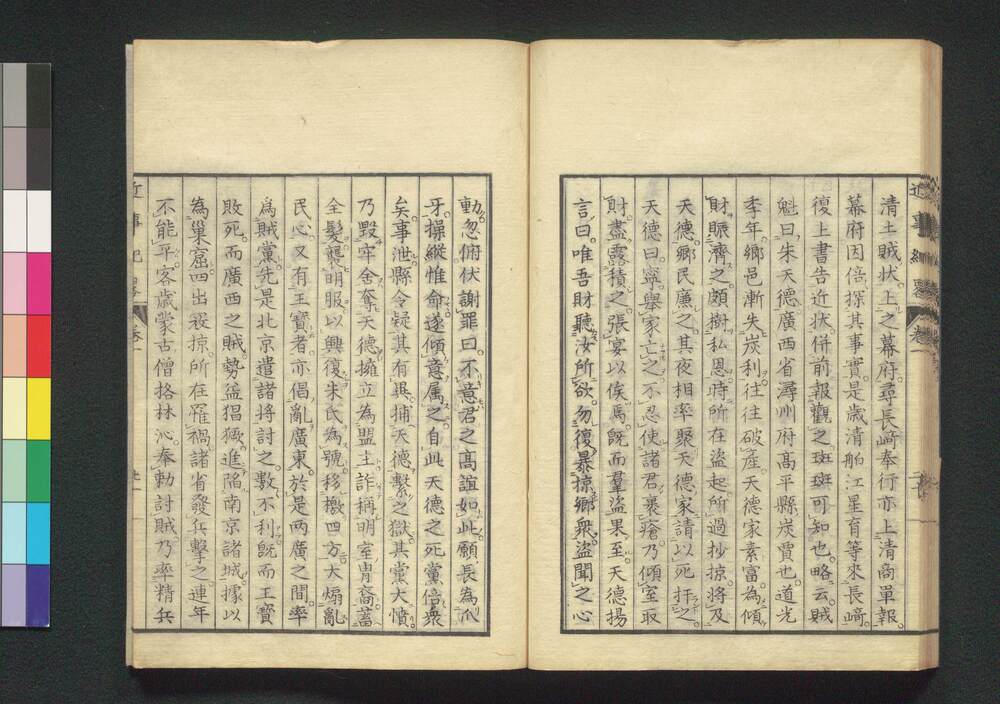 清土賊狀上之幕府尋長﨑奉行亦上清商單報
幕府因倍探其事實是歳清舶江星育等來長﨑
復上書告近狀併前報觀之斑斑可知也略云賊
魁曰朱天德廣西省潯州府高平縣炭賈也道光
季年鄉邑漸失炭利往往破產天德家素富為傾
財賑濟之頗樹私恩時所在盜起所過抄掠將及
天德鄉民廉之其夜相率聚天德家請以死扞之
天德曰寧舉家亡之不忍使諸君裹瘡乃傾室取
財盡露積之張宴以俟焉既而羣盜果至天德揚
言曰唯吾財聽汝所欲勿復暴掠鄉衆盜聞之心
動忽俯伏謝罪曰不意君之高誼如此願長為爪
牙操縱惟命遂傾意属之自此天德之死黨倍衆
矣事泄縣令疑其有異捕天德繫之獄其黨大憤
乃毀牢舍奪天德擁立為盟主詐稱明室冑裔蓄
全髮襲明服以興復朱氏為號移檄四方大煽亂
民心又有王寶者亦倡亂廣東於是兩廣之間率
為賊黨先是北京遣諸將討之數不利既而王寶
敗死而廣西之賊勢益猖獗進陷南京諸城據以
為巢窟四出裒掠所在罹禍諸省發兵擊之連年
不能平客歳蒙古僧格林沁奉勅討賊乃率精兵
近事紀畧 卷一